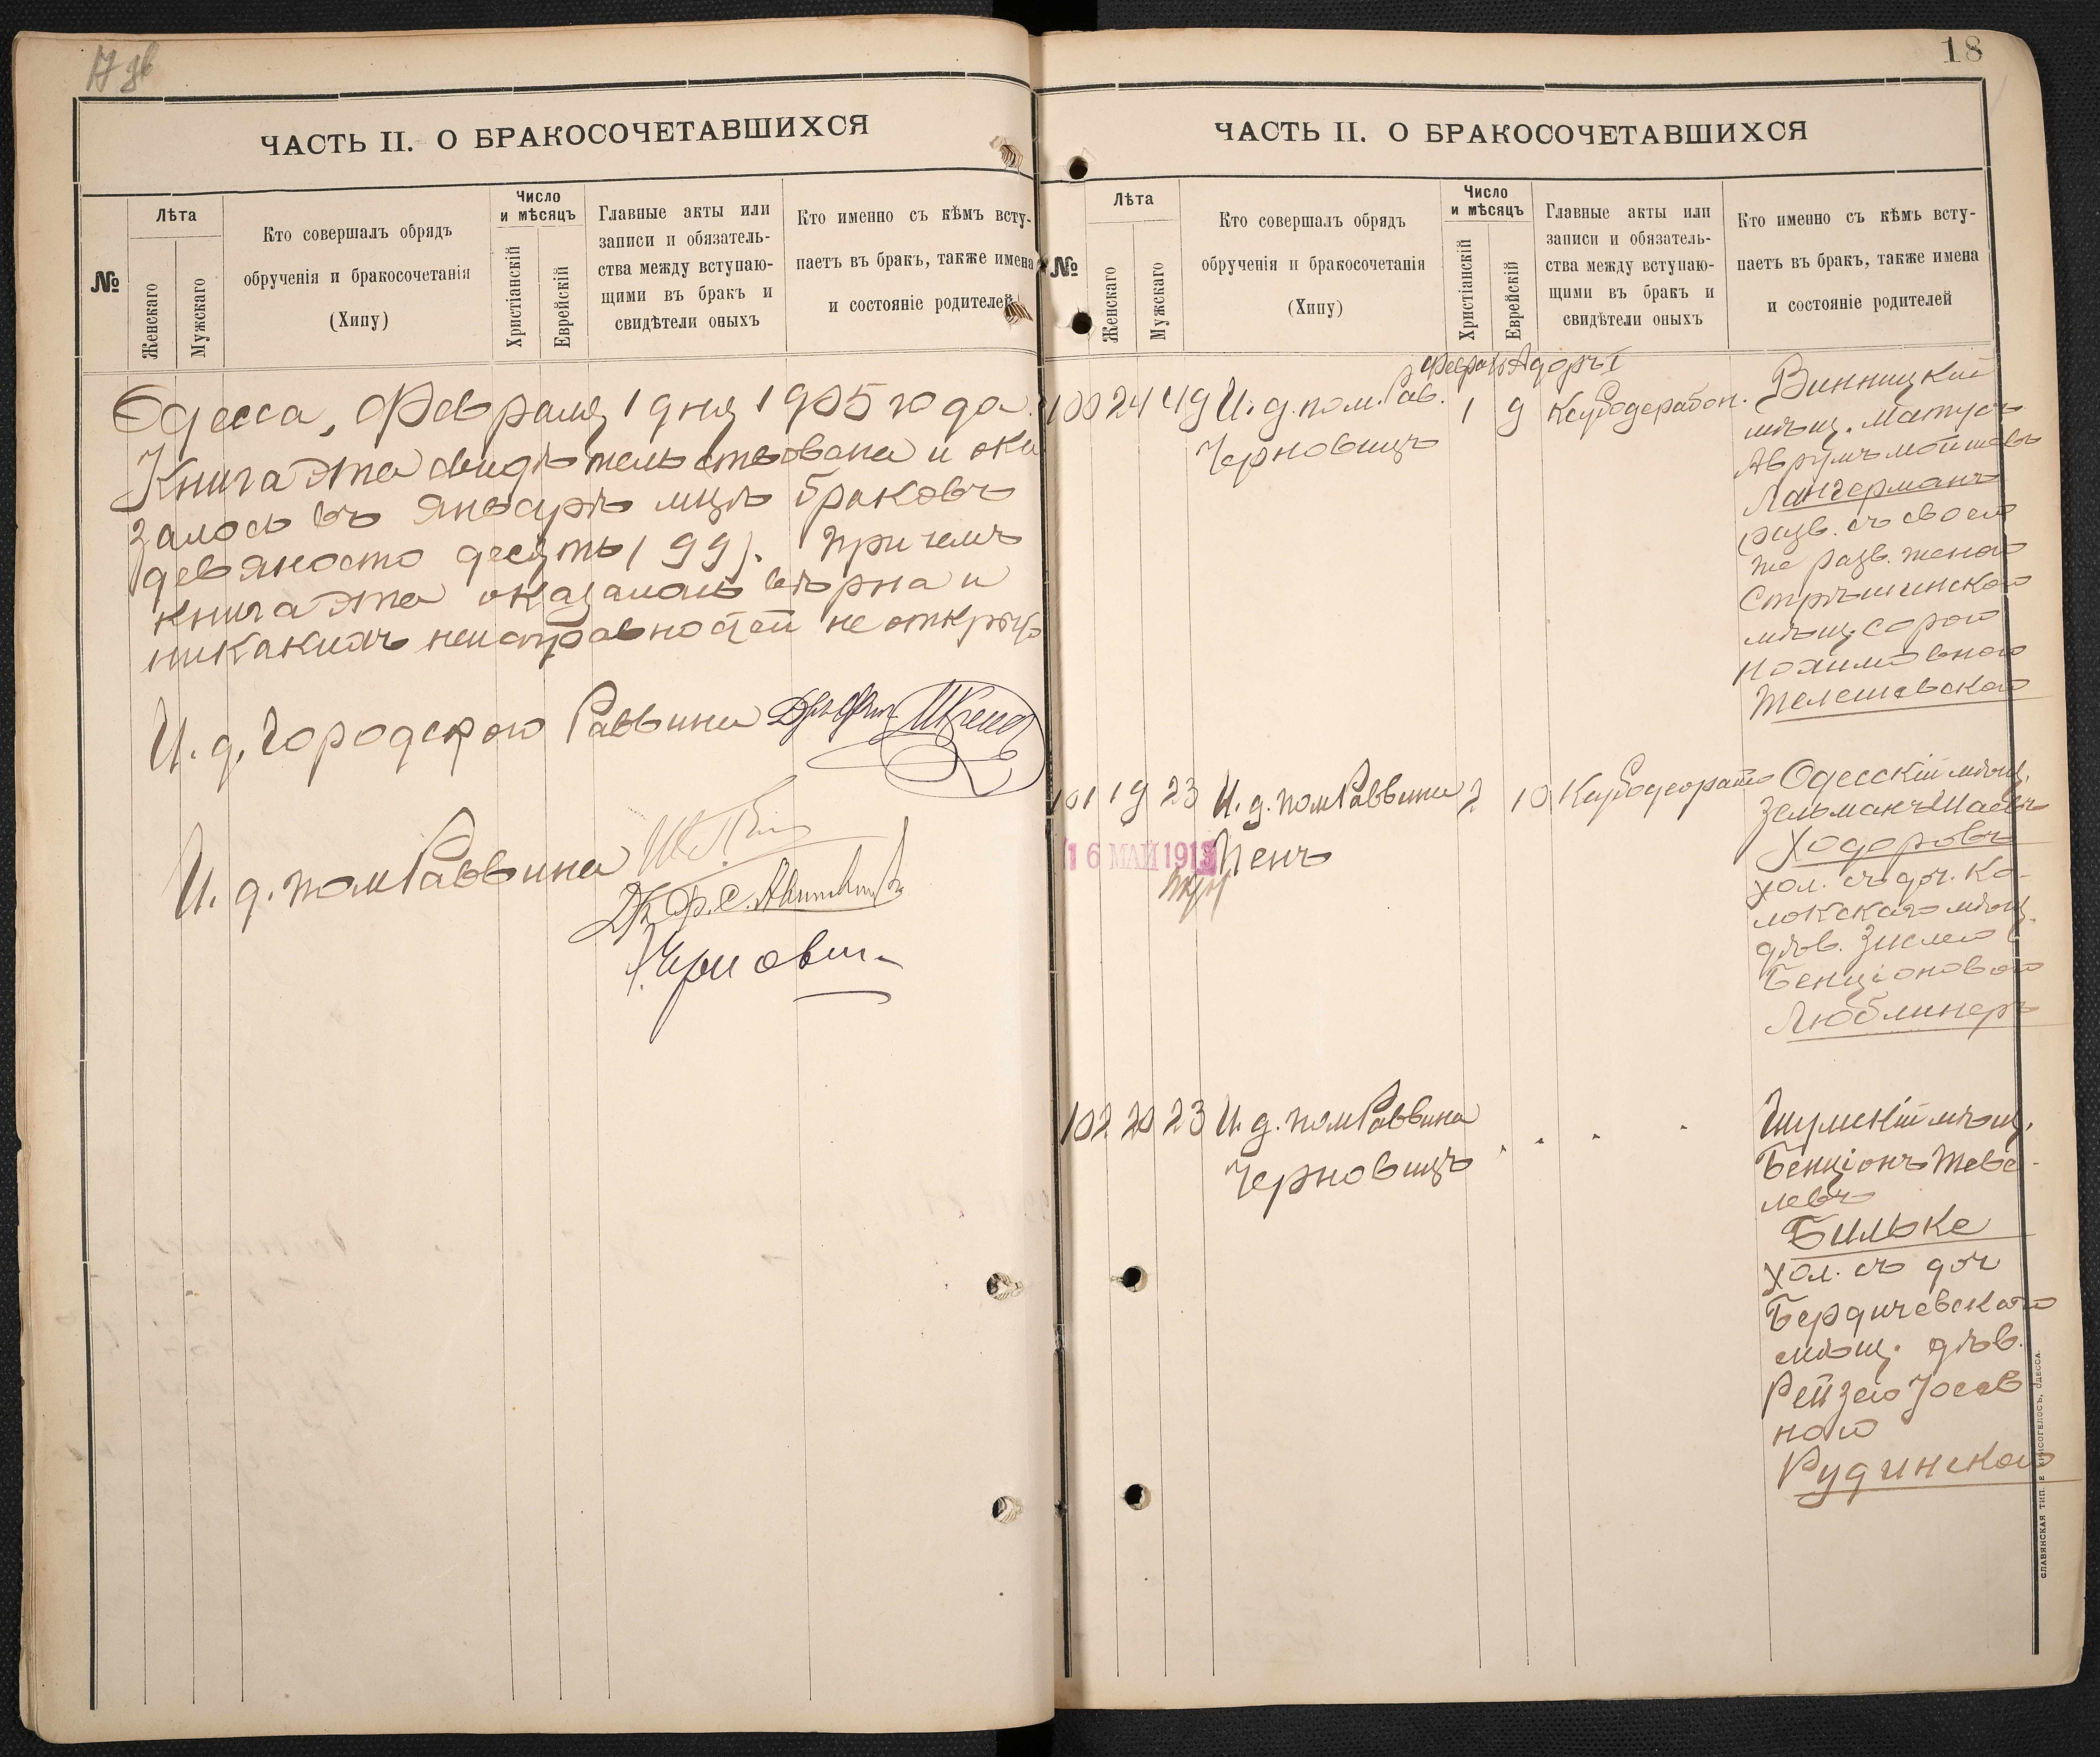 17 зв
ЧАСТЬ II. О БРАКОСОЧЕТАВШИХСЯ
№
Лѣта
Женскаго
Мужскаго
Кто совершалъ обрядъ
обрученія и бракосочетанія
(Хипу)
Число
и мѣсяцъ
Христіанскій
Еврейскій
Главные акты или
записи и обязатель-
ства между вступаю-
щими въ бракъ и
свидѣтели оныхъ
Кто именно съ кѣмъ всту-
паетъ въ бракъ, также имена
и состояніе родителей
Одесса, Февраля 1 дня 1905 года.
Книга эта свидѣтельствована и ока
залось въ январѣ мцѣ браковъ
девяносто десять (99). При чемъ
книга эта оказалась вѣрна и
никакихъ неисправностей не открыто
И. д. Городского Раввина
И. д. пом Раввина
Черновиц
18
ЧАСТЬ II. О БРАКОСОЧЕТАВШИХСЯ
№
Лѣта
Женскаго
Мужскаго
Кто совершалъ обрядъ
обрученія и бракосочетанія
(Хипу)
Число
и мѣсяцъ
Христіанскій
Еврейскій
Главные акты или
записи и обязатель-
ства между вступаю-
щими въ бракъ и
свидѣтели оныхъ
Кто именно съ кѣмъ всту-
паетъ въ бракъ, также имена
и состояніе родителей
Февраль Адоръ I
100 24 49 И. д. пом. Рав. 1 9
Черновицъ
Винницкій
мѣщ. Матусъ
Аврумъ Мошковъ
Лангерманъ
разв. съ своею
же разв. женою
мѣщ. Сорою
Телешевскою
101 19 23 И. д. пом Раввина 2 10
Ценъ
16 МАЙ 1913
Одесскій мѣщ.
Зельманъ Шаевъ
Ходоровъ
хол. съ доч. Ко-
локскаго мѣщ.
дѣв. Зислею
Бенціоновою
Люблинеръ
102 20 23 И. д. пом Раввина " " " "
Черновицъ
Шумскій мѣщ.
Бенціонъ Теве-
левъ
Бильке
хол. съ доч
Бердичевскаго
мѣщ. дѣв.
Рейзею Іосев
ною
Рудинскою
СЛАВЯНСКАЯ ТИП. Е. ХРИСОГЕЛОСЪ, ОДЕССА.